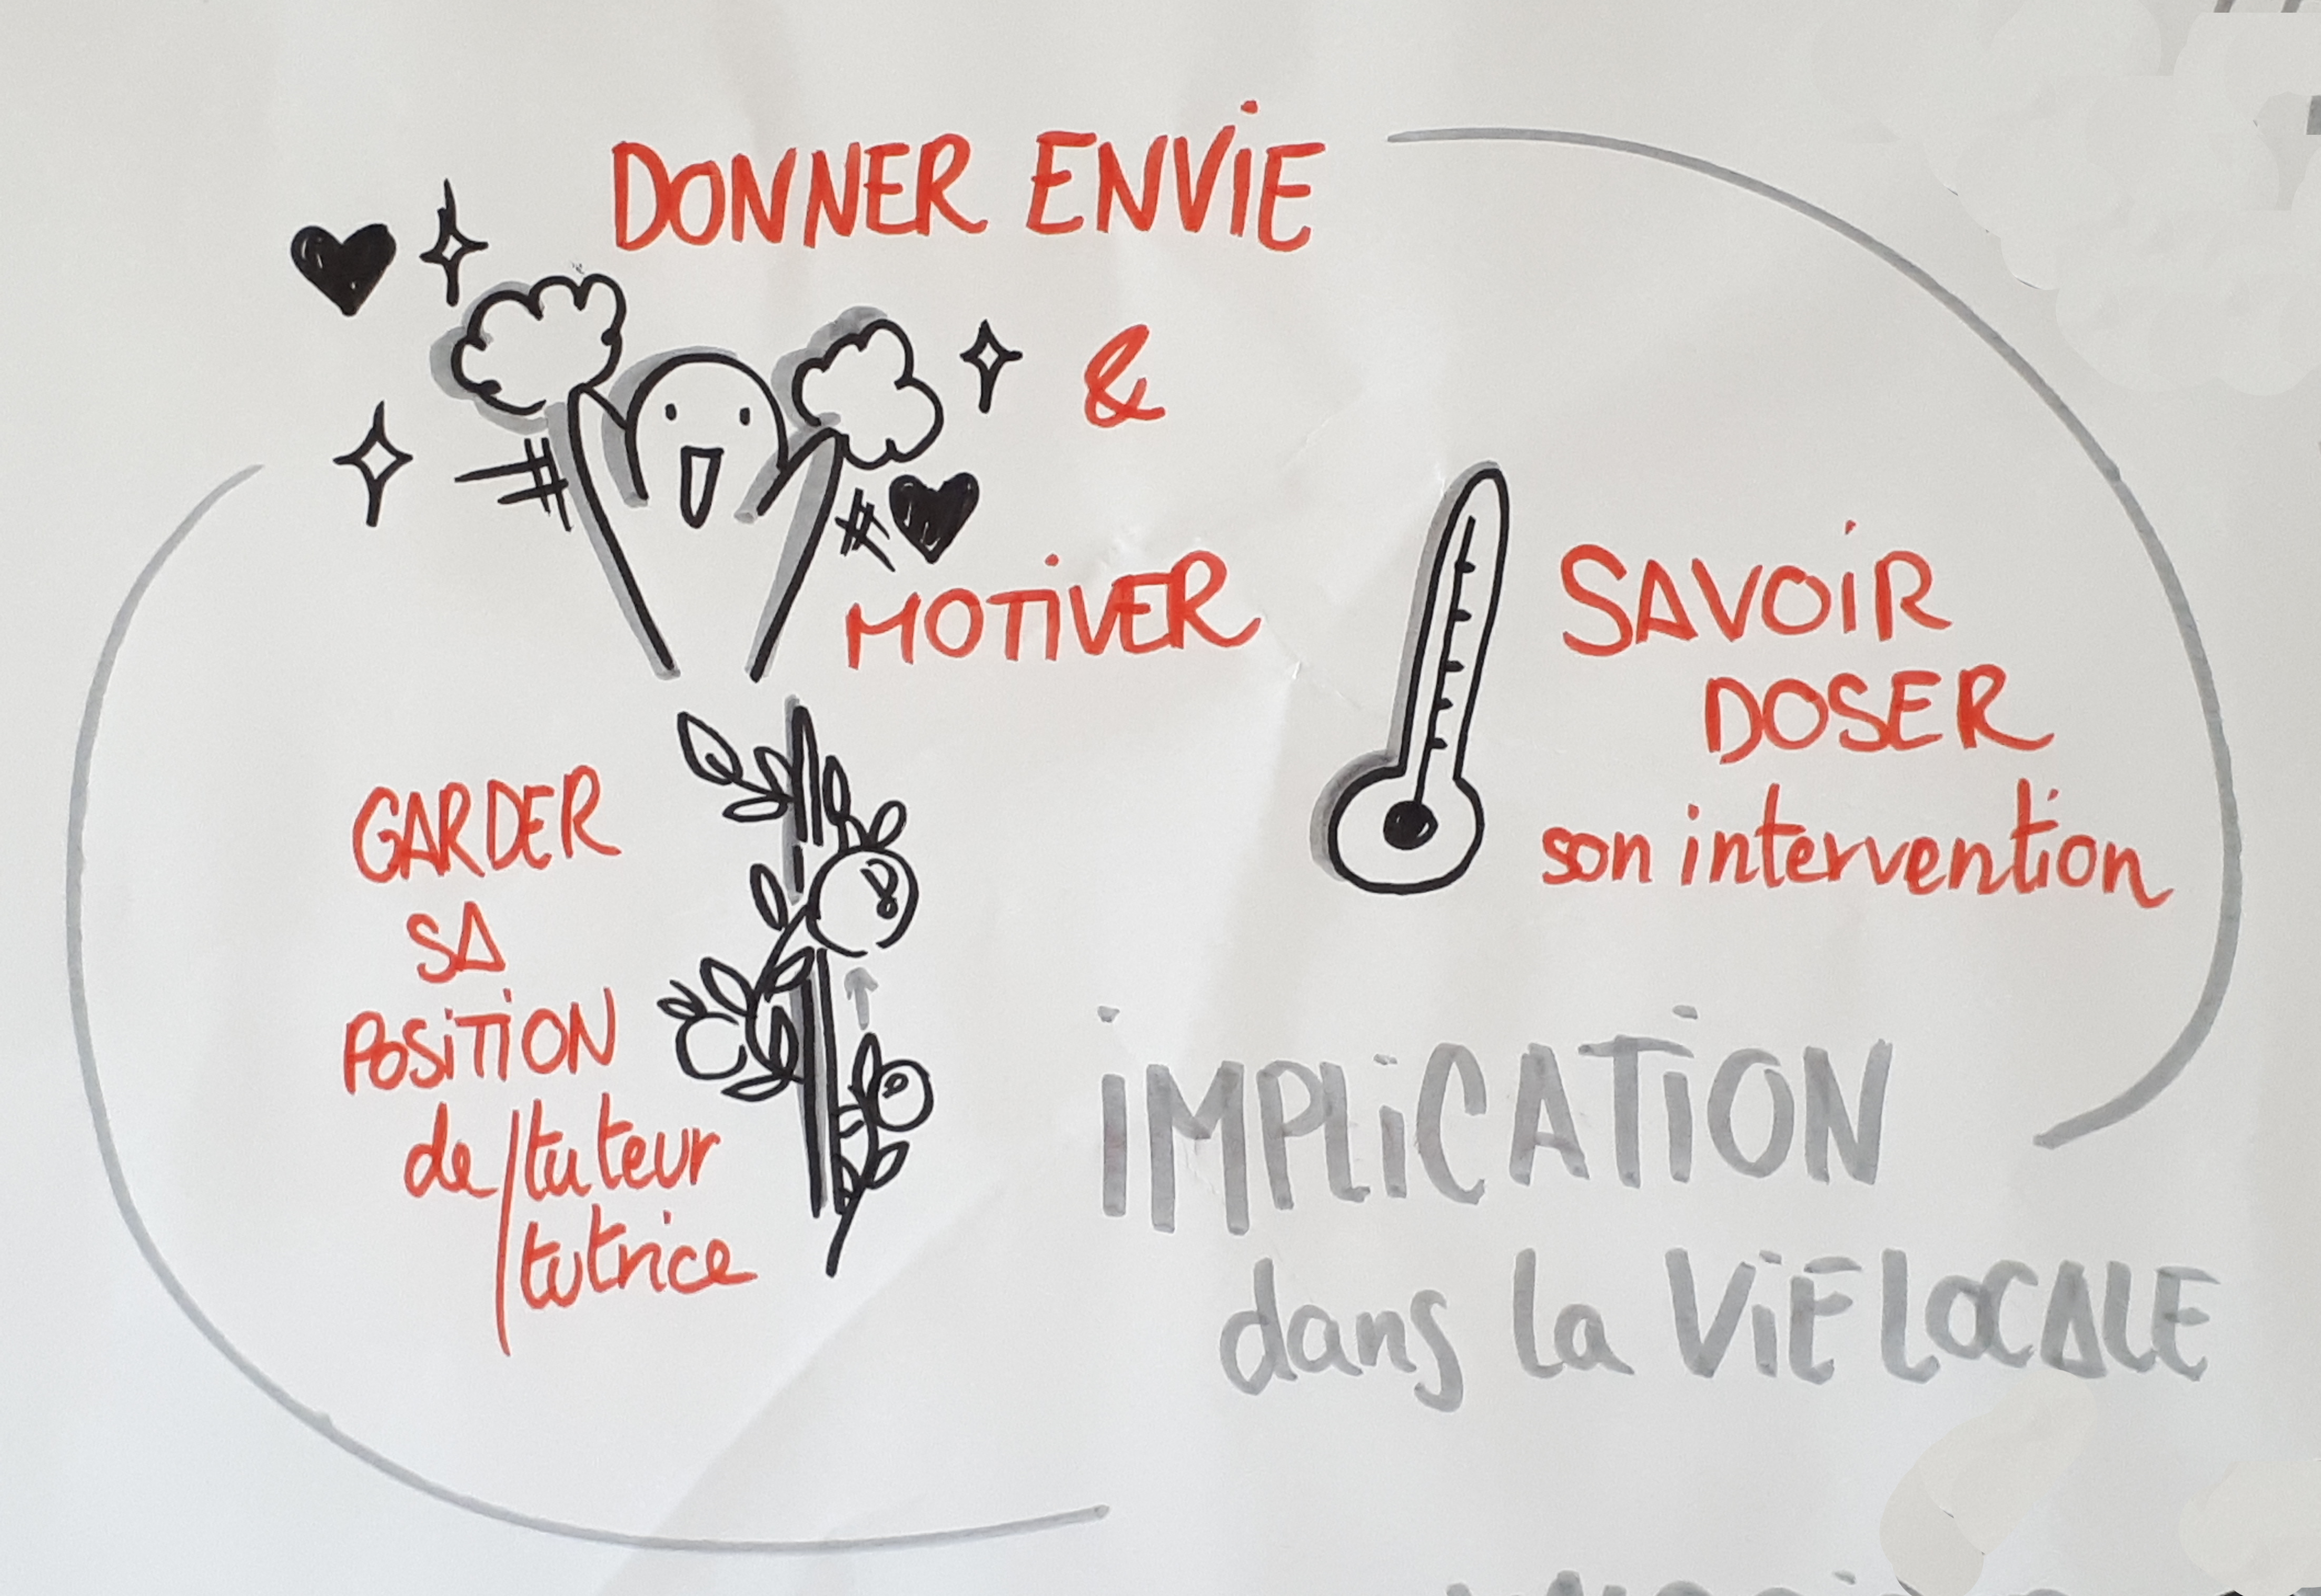 DONNER ENVIE
&
MOTIVER
SAVOIR
DOSER
son intervention
GARDER
SA
POSITION
de/tuteur
/tutrice
IMPLICATION
dans la VIE LOCALE